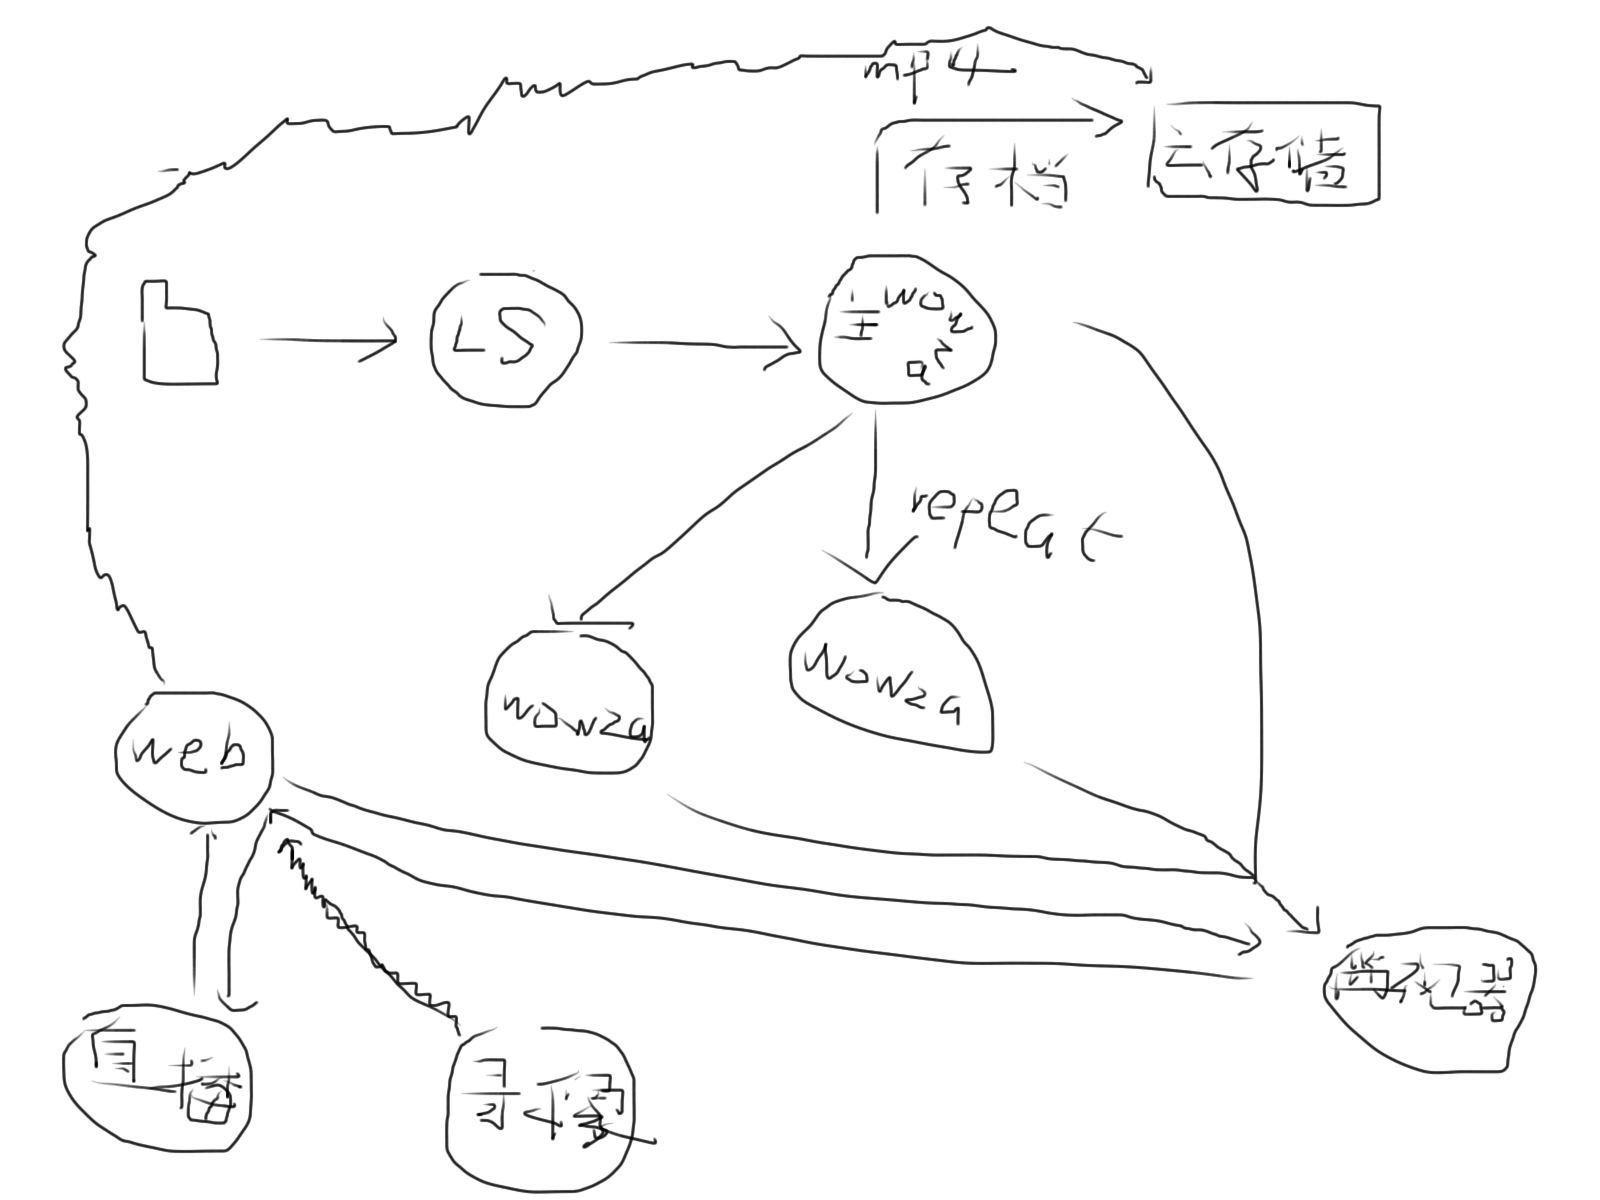 mp4
存档
云存储
LS
主wowza
repeat
wowza
Wowza
web
直播
录像